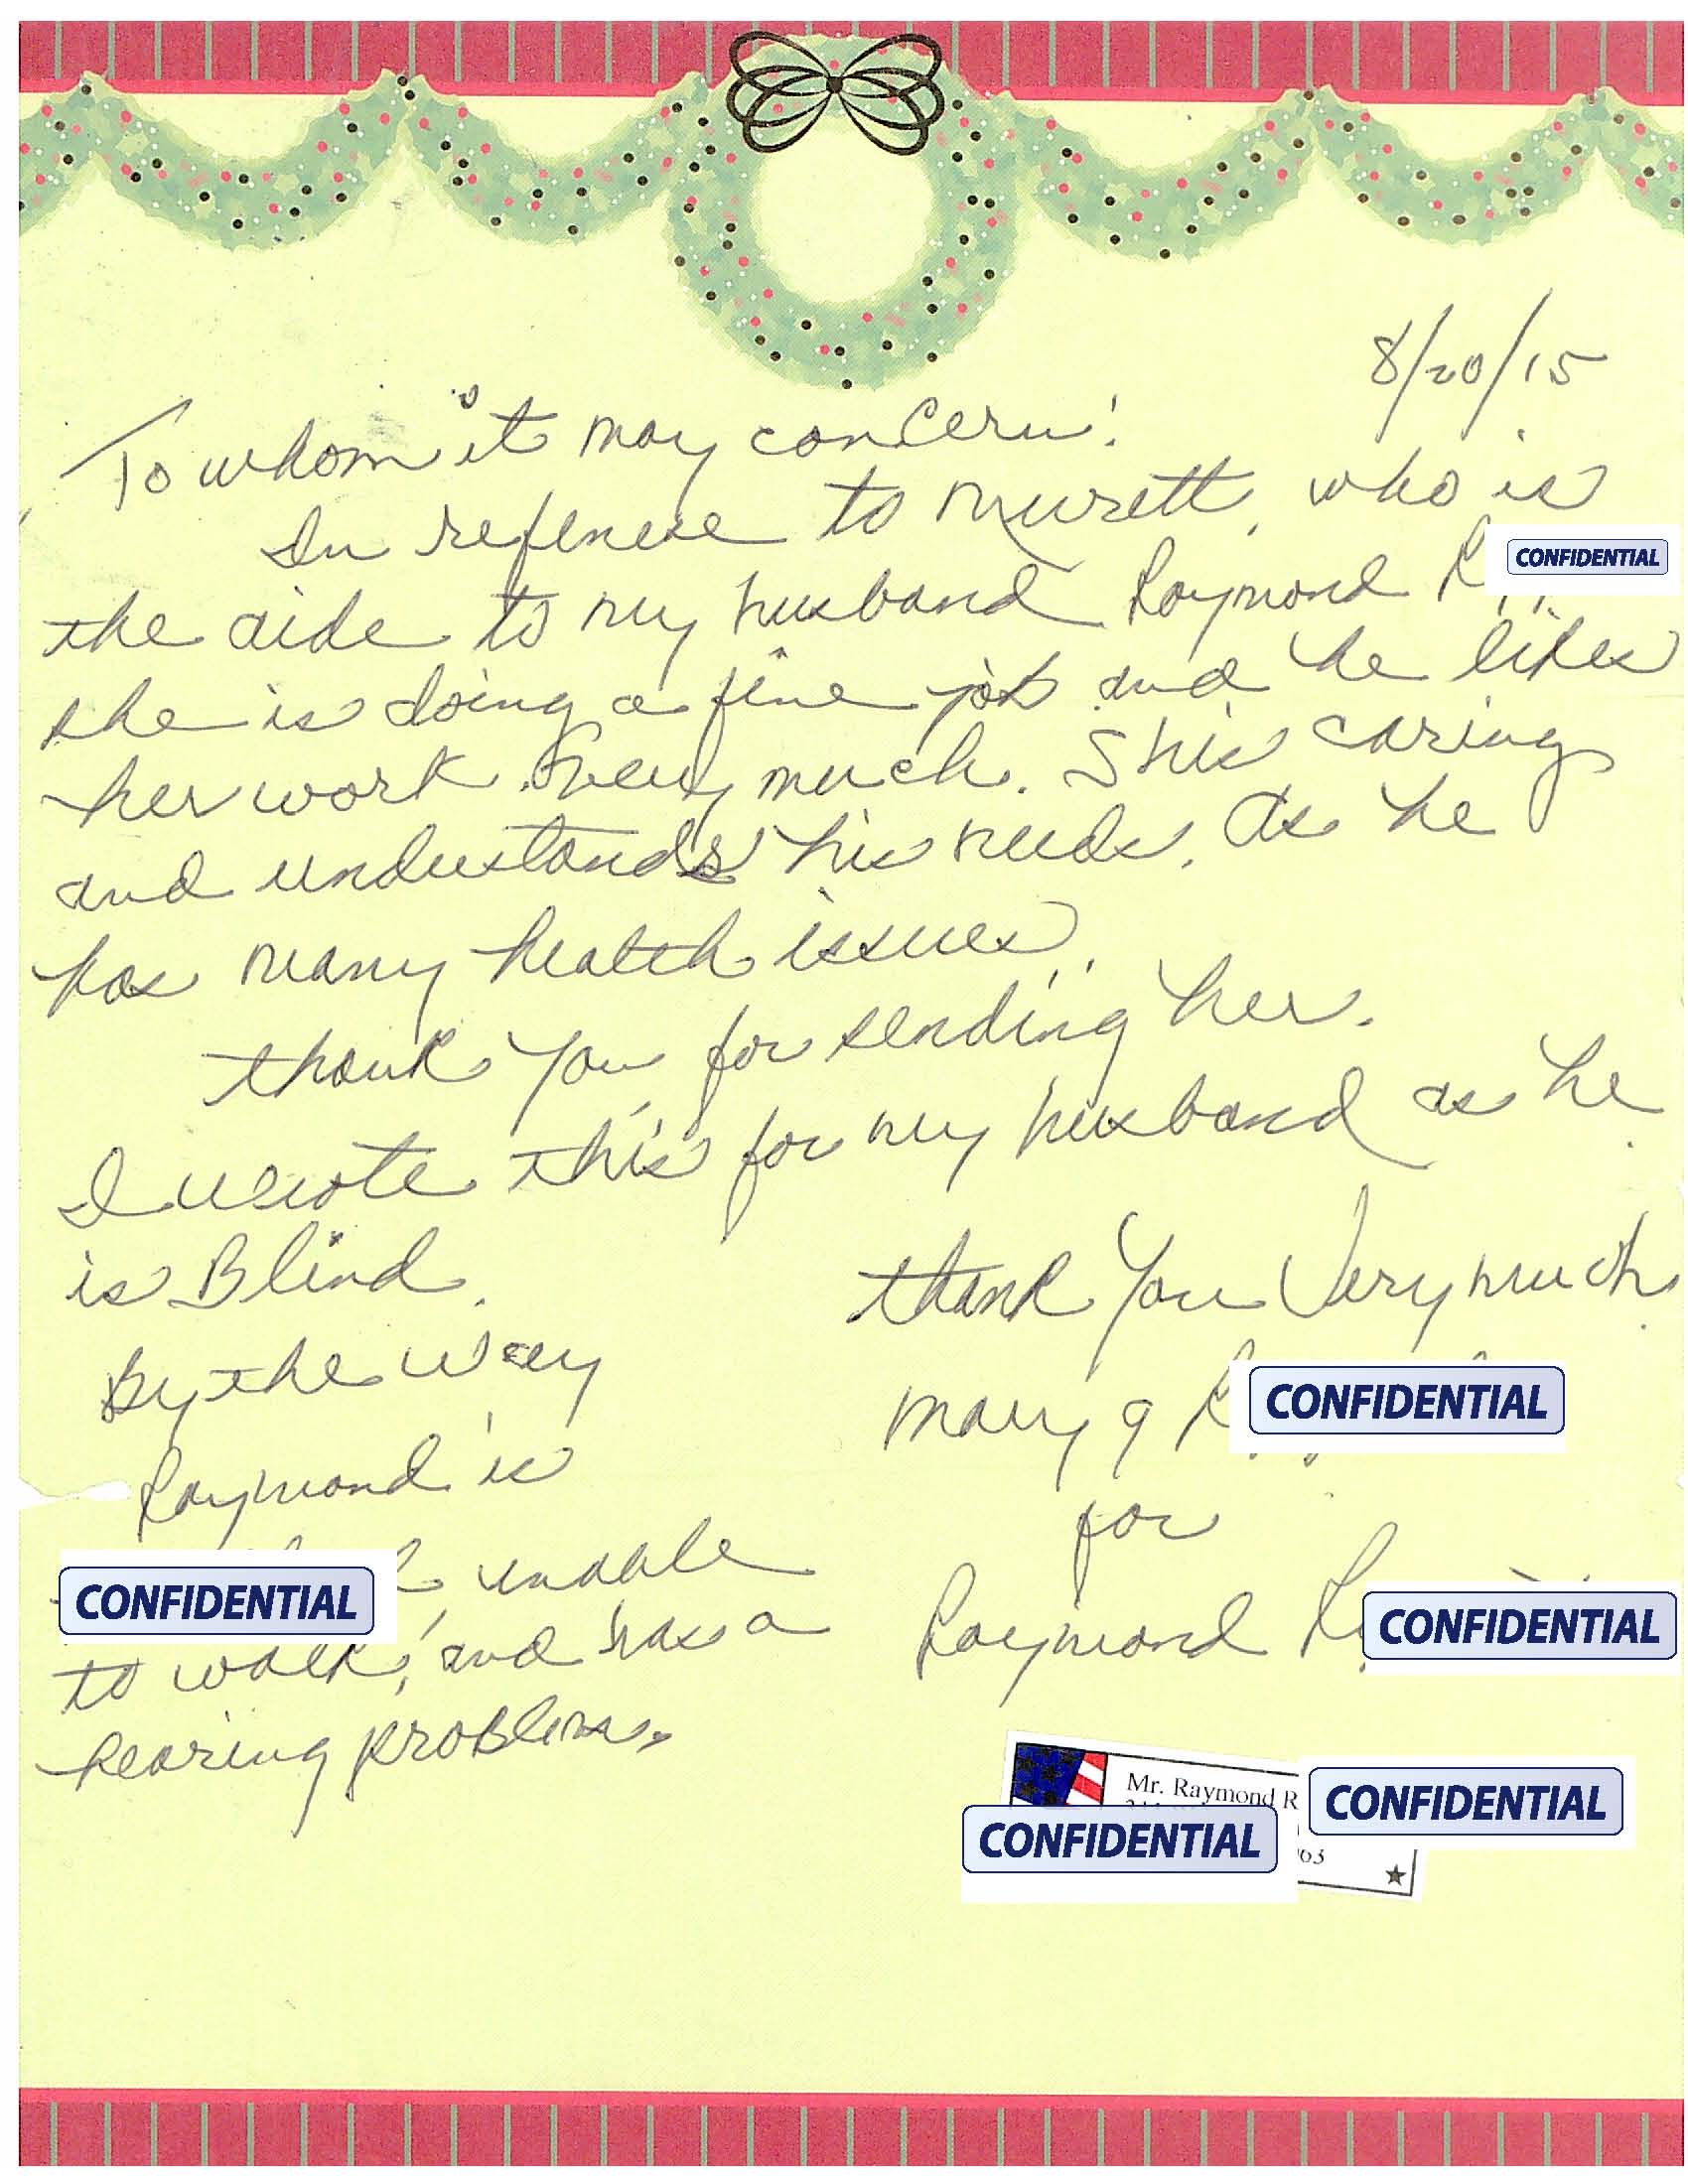 8/20/15
To whom it may concern!
In refenece to Myrett, who is
the aide to my husband Raymond R CONFIDENTIAL
she is doing a fine job and he likes
her work very much. Shis caring
and understands his needs. As he
has many health issues.
thank You for sending her.
I wrote this for my husband as he
is Blind.
thank You Very much
By the way
Mary J R CONFIDENTIAL
Raymond is
for
CONFIDENTIAL unable
to walk, and has a
Raymond R CONFIDENTIAL
hearing problem.
Mr. Raymond R CONFIDENTIAL
CONFIDENTIAL
63